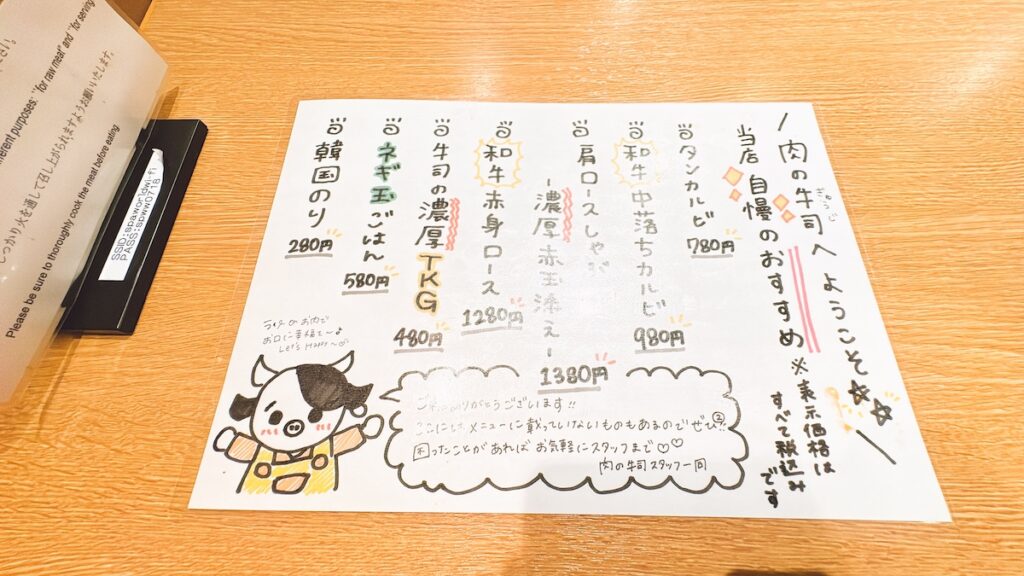 fferent purposes: "for raw meat" and "for serving
しっかり火を通して召し上がられますようお願いいたします。
Please be sure to thoroughly cook the meat before eating.
SSID:spaworldwi-fi
PASS:spww0718
肉の牛司へようこそ☆☆
ぎゅうじ
当店自慢のおすすめ
※表示価格は
すべて税込み
です
タンカルビ
780円
和牛中落ちカルビ
980円
肩ロースしゃぶ
-濃厚赤玉添え-
1380円
和牛赤身ロース
1280円
牛司の濃厚TKG
480円
ネギ玉ごはん
580円
韓国のり
280円
お肉で
お口に幸福を〜♪
Let's Happy〜
ありがとうございます!!
メニューに載っていないものもあるのでぜひ!!
困ったことがあればお気軽にスタッフまで♡♡
肉の牛司スタッフ一同